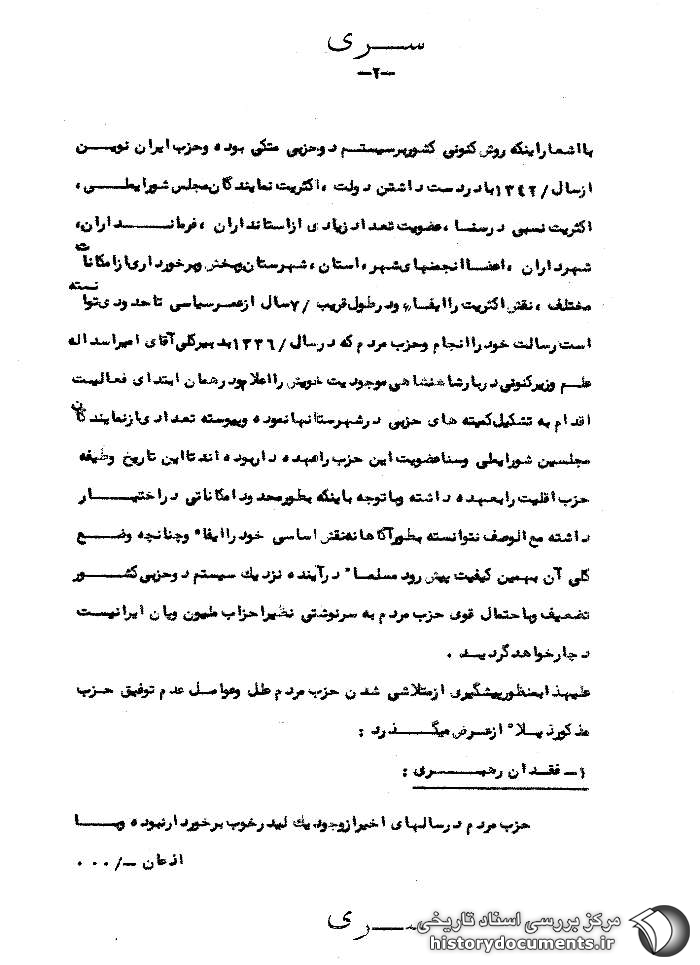 سری
-۲-
با اشعار اینکه روش کنونی کشور بر سیستم دو حزبی متکی بوده و حزب ایران نویـــن
از سال /۱۳۴۲ با در دست داشتن دولت ، اکثریت نمایندگان مجلس شورایملـــی ،
اکثریت نسبی در سنا ، عضویت تعداد زیادی از استانداران ، فرمانـــداران ،
شهرداران ، اعضا انجمنهای شهر ، استان ، شهرستان و بخش و برخورداری از امکانات
مختلف ، نقش اکثریت را ایفاء و در طول قریب /۷ سال از عمر سیاسی تا حدودی توانسته
است رسالت خود را انجام و حزب مردم که در سال /۱۳۳۶ بدبیرکلی آقای امیر اسداله
علـم وزیر کنونی دربار شاهنشاهی موجودیت خویش را اعلام و در همان ابتدای فعالیـت
اقدام به تشکیل کمیته های حزبی در شهرستانها نموده و پیوسته تعدادی از نمایندگان
مجلسین شورایملی و سنا عضویت این حزب را عهده دار بوده اند تا این تاریخ وظیفه
حزب اقلیت را بعهده داشته و با توجه باینکه بطور محدود امکاناتی در اختیـــار
داشته مع الوصف نتوانسته بطور آگاهانه نقش اساسی خود را ایفاء و چنانچه وضـــع
کلی آن بهمین کیفیت پیش رود مسلماً در آینده نزدیك سیستم دو حزبی کشـــور
تضعیف و با احتمال قوی حزب مردم به سرنوشتی نظیر احزاب ملیون و پان ایرانیست
دچار خواهد گردیـد .
علیهذا بمنظور پیشگیری از متلاشی شدن حزب مردم علل و عوامـل عدم توفیق حزب
مذکور ذیلاً از عـرض میگـــذرد :
۱- فقـدان رهبـــری :
حزب مردم در سالهای اخیر از وجود یك لیدر خوب برخوردار نبوده و بـــا
اذعان -/۰۰۰
سری
مرکز بررسی اسناد تاریخی
historydocuments.ir